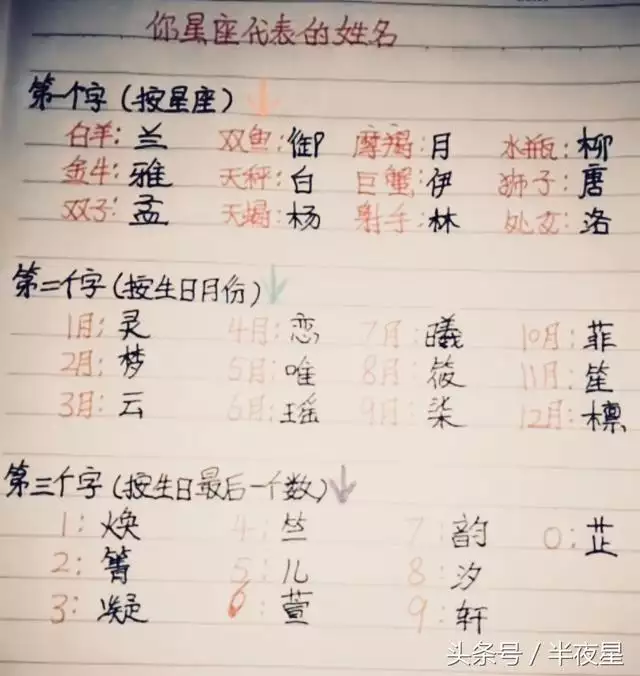 你星座代表的姓名
第一个字(按星座)↓
白羊:兰 双鱼:御 摩羯:月 水瓶:柳
金牛:雅 天秤:白 巨蟹:伊 狮子:唐
双子:孟 天蝎:杨 射手:林 处女:洛
第二个字(按生日月份)↓
1月:灵 4月:恋 7月:曦 10月:菲
2月:梦 5月:唯 8月:筱 11月:笙
3月:云 6月:瑶 9月:柒 12月:檩
第三个字(按生日最后一个数)↓
1:焕 4:竺 7:韵 0:芷
2:箐 5:儿 8:汐
3:凝 6:萱 9:轩
头条号/半夜星